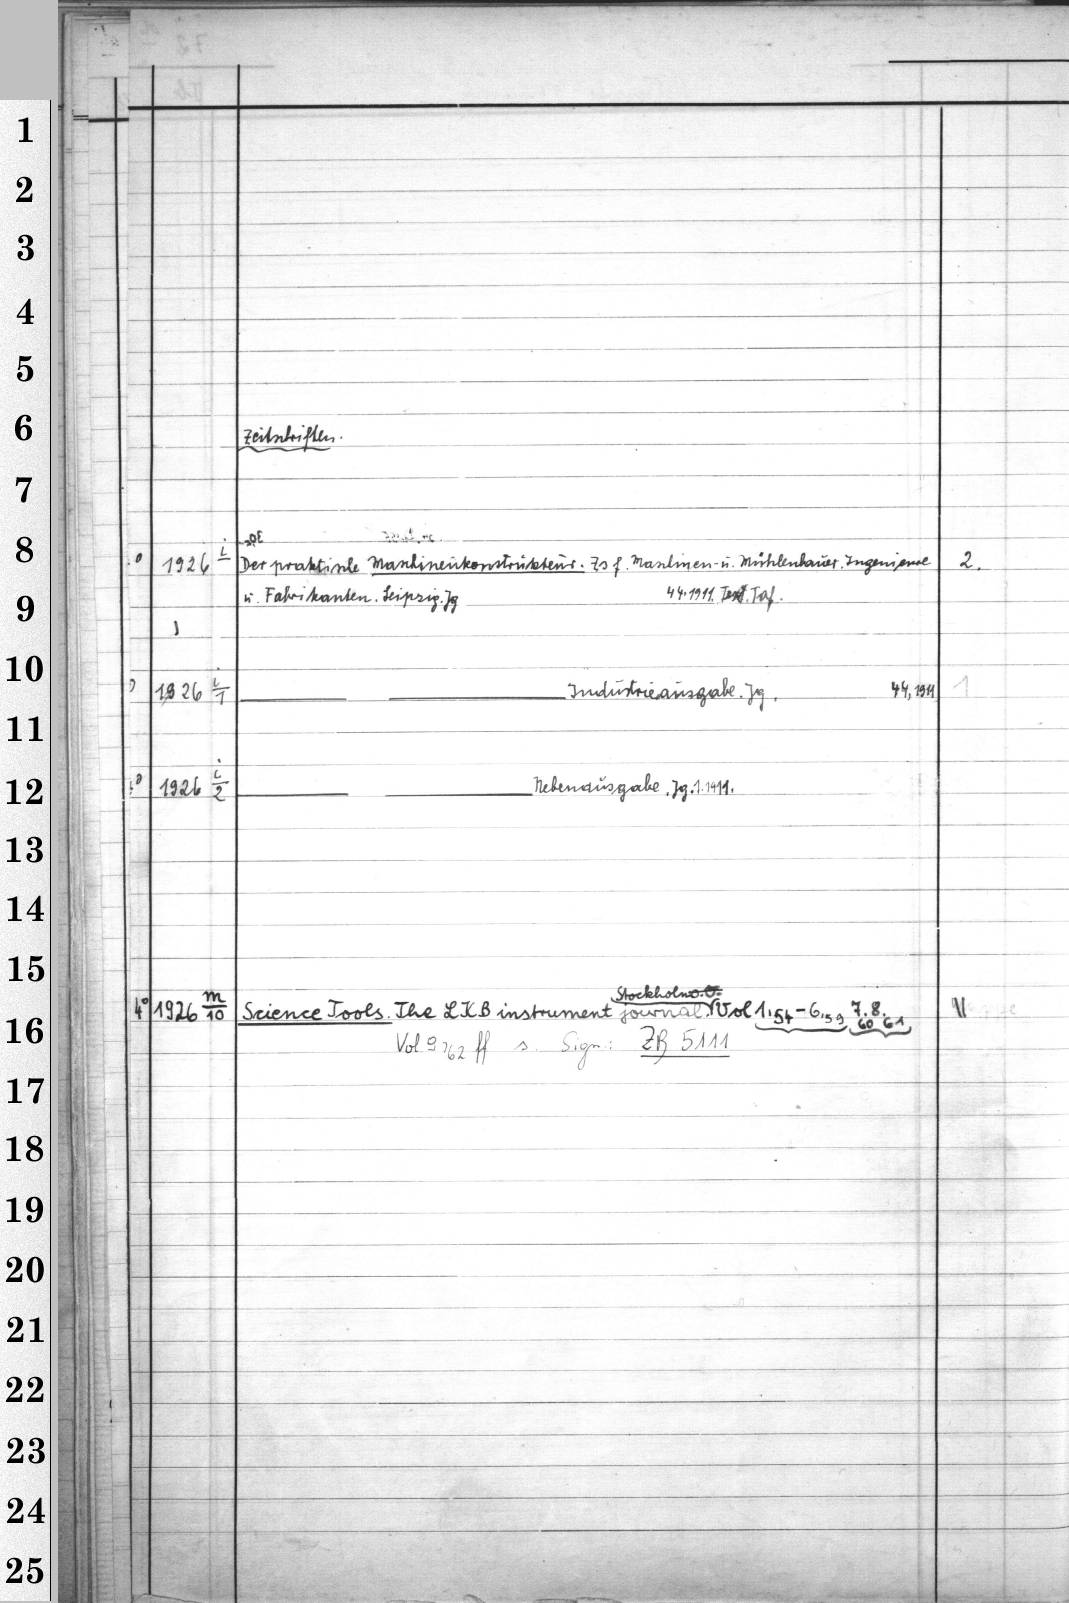 1
2
3
4
5
6
Zeitschriften.
7
8
1926 i Der praktische Maschinenkonstrukteur. Zs f. Maschinen- u. Mühlenbauer, Ingenieure 2.
9
u. Fabrikanten. Leipzig. Jg 44.1911. Text. Taf.
10
1926 i/1 Industrieausgabe. Jg. 44, 1911 1
11
12
1926 i/2 Nebenausgabe. Jg. 1. 1911.
13
14
15
Stockholm
4° 1926 m/10 Science Tools. The LKB instrument journal. Vol 1,54-6,59 7. 8. II
60 61
16
Vol 9,62 ff s. Sign.: ZB 5111
17
18
19
20
21
22
23
24
25